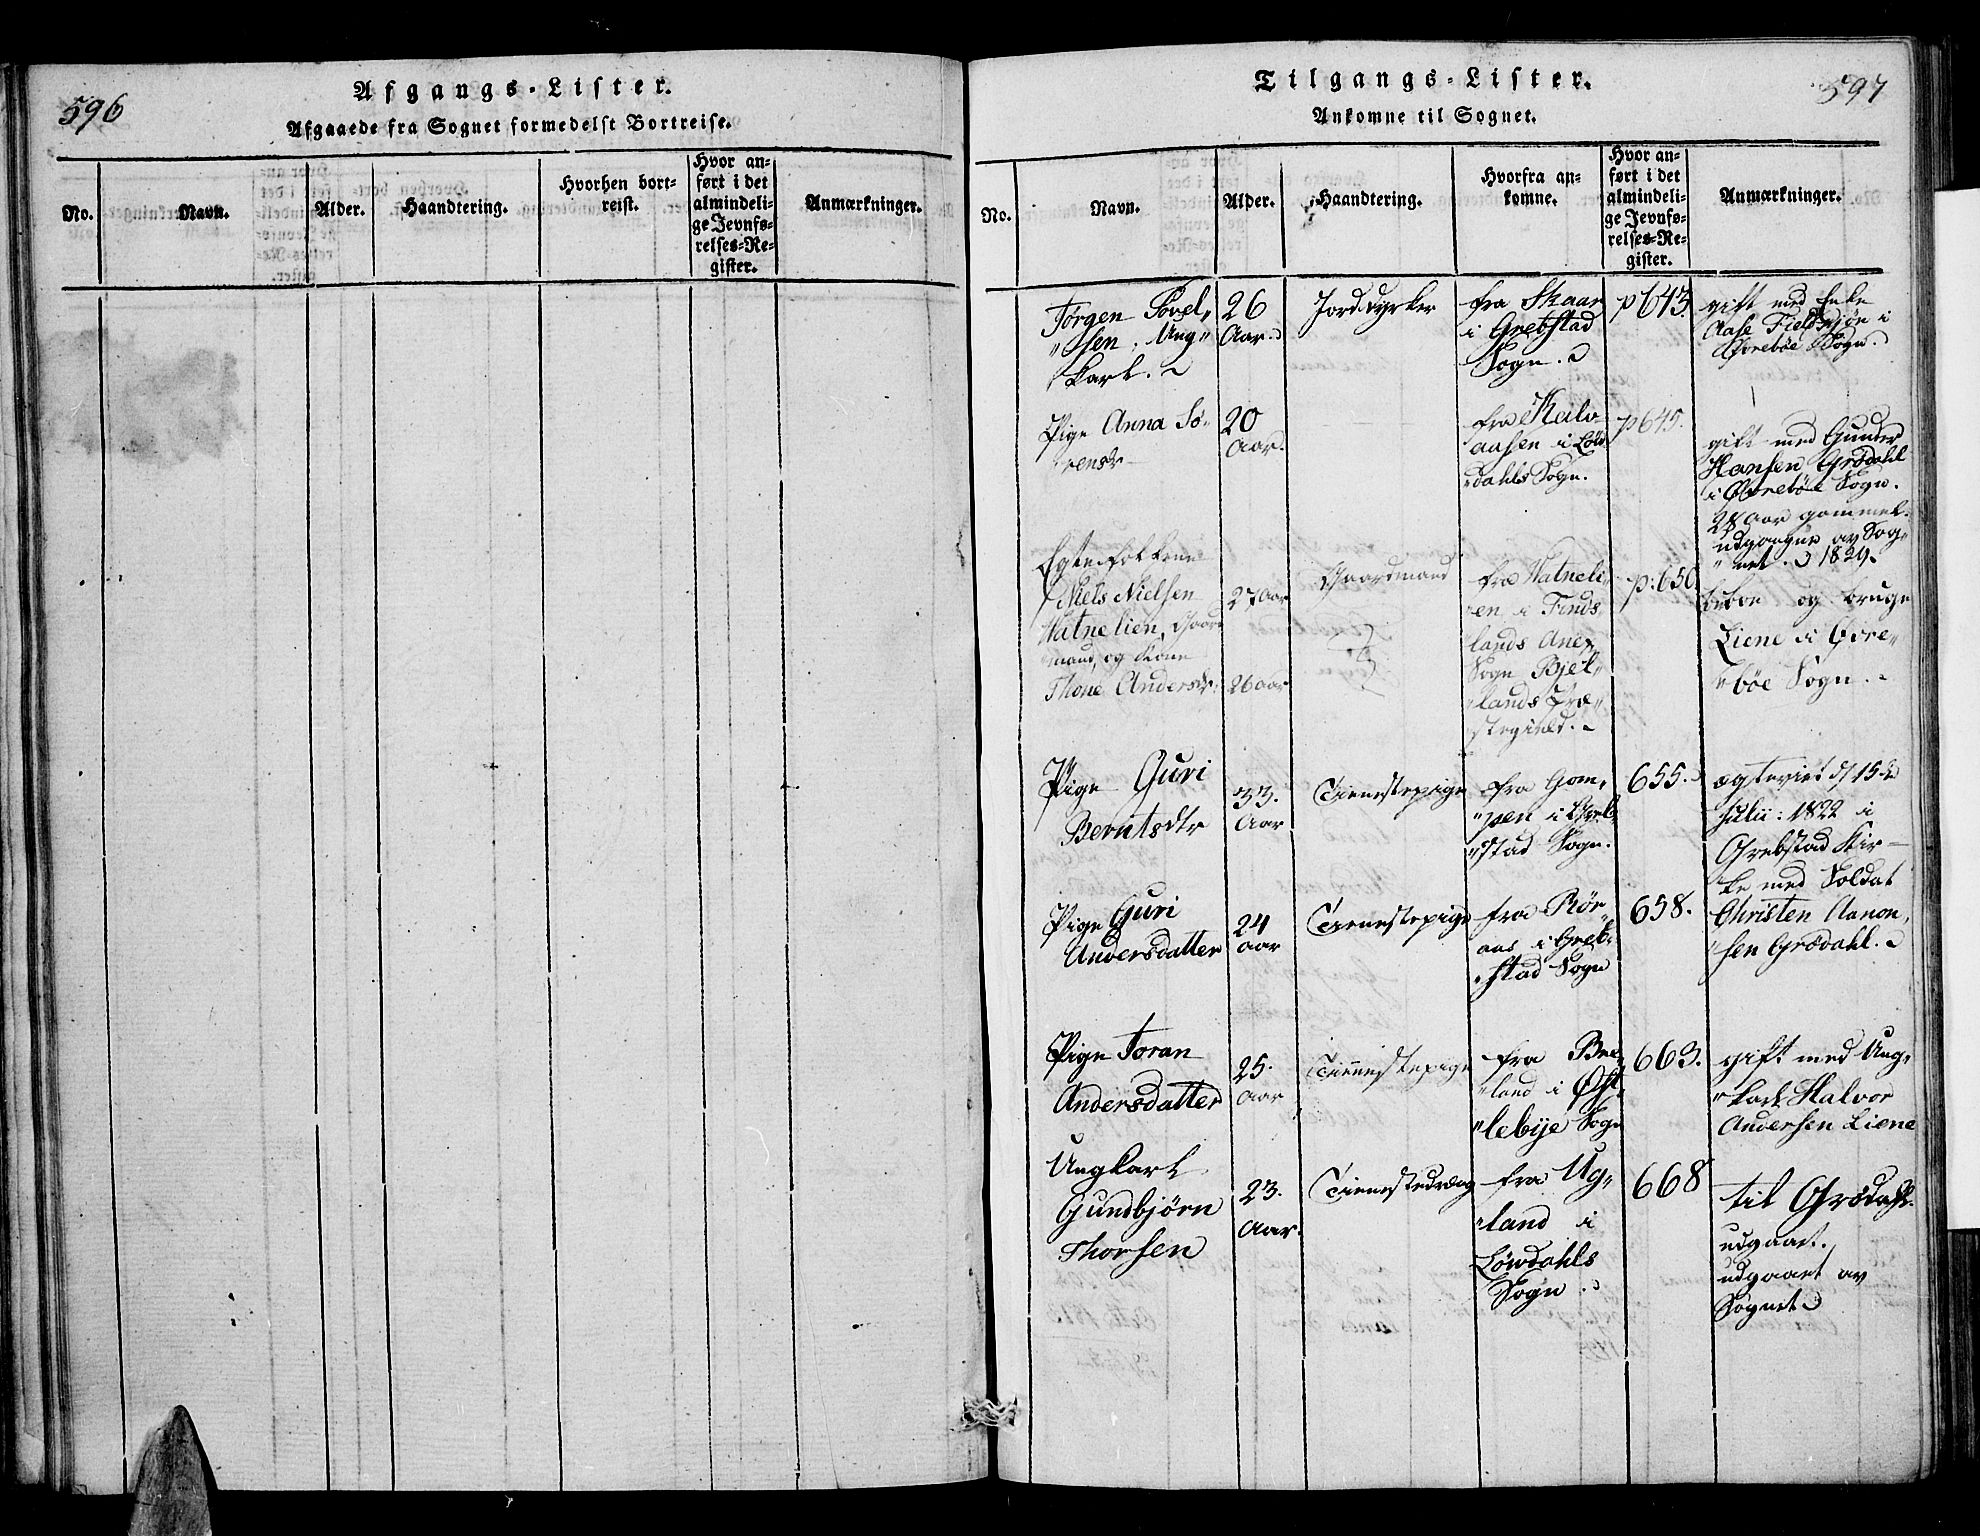 596
Afgangs-Lister.
Afgaaede fra Sognet formedelst Bortreise.
No.
Navn.
Alder.
Haandtering.
Hvorhen bort-
reist.
Hvor an-
ført i det
almindeli-
ge Jevnfø-
relses-Re-
gister.
Anmærkninger.
597
Tilgangs-Lister.
Ankomne til Sognet.
No.
Navn.
Alder.
Haandtering.
Hvorfra an-
komne.
Hvor an-
ført i det
almindeli-
ge Jevnfø-
relses-Re-
gister.
Anmærkninger.
Jørgen Povel„
„sen. Ung„
karl.
26
Aar.
Jorddyrker
fra Skaar
i Grebstad
Sogn.
p 643.
gift med Enke
Aase
i
Øvrebøe Sogn.
Pige Anna Sö-
rensdr
20
Aar.
fra
aasen i Löv
dahls Sogn.
p 645.
gift med Gunder
Hansen Grödahl
i Øvrebøe Sogn.
28 Aar gammel.
udgangne av Sog„
„net. 1829.
Egtefolkene
Niels Nielsen
Vatnelien, Gaard
mand, og Kone
Thone Andersdr.
27 Aar
26 aar
Gaardmand
fra Vatneli„
„en i Finds
lands Anex
Sogn Bjel„
„lands Præ„
stegield.
p. 650.
beboe og bruge
Liene i Øvre„
„bøe Sogn.
Pige Guri
Berntsdtr
33.
Aar
Tienestepige
fra Gom„
„pen i Greb„
„stad Sogn.
655.
egteviet d 15de
Julii: 1822 i
Grebstad Kir–
ke med Soldat
Christen Aanon„
sen Grødahl.
Pige Guri
Andersdatter
24
aar
Tienestepige
fra Rör„
aas i Greb„
„stad Sogn
658.
Pige Toran
Andersdatter
25.
Aar
Tienestepige
fra Bre„
„land i Øst
„lebye Sogn
663.
gift med Ung„
„karl Halvor
Andersen Liene
Ungkarl
Gundbjørn
Thorsen
23.
Aar.
Tienestedreng
fra Ug„
„land i
Löwdahls
Sogn.
668
til Grødahl.
udgaaet.
udgaaet av
Sognet